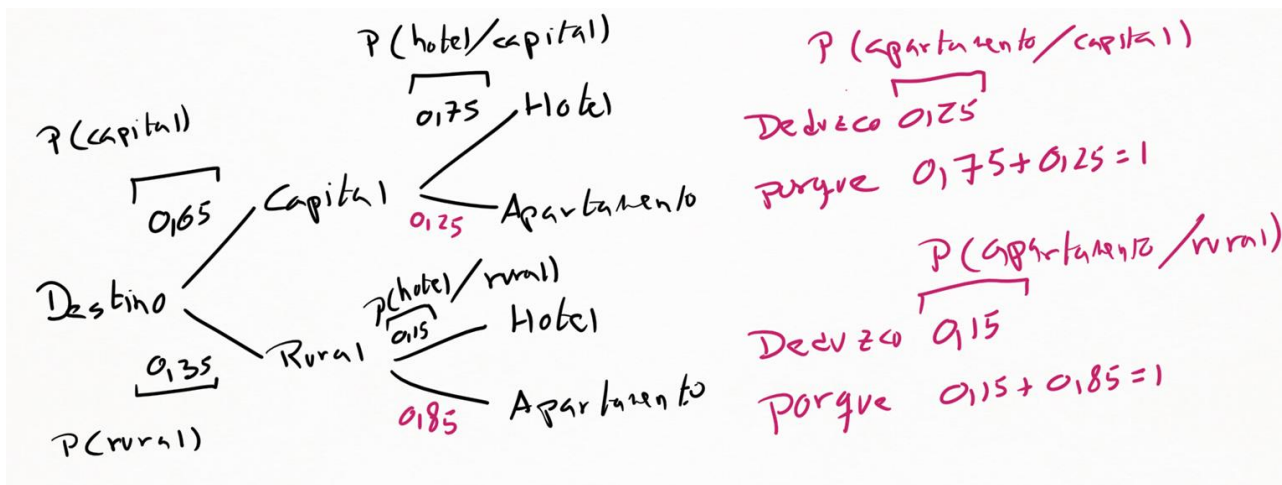 P(hotel/capital)
0,75
Hotel
P(capital)
0,65
Capital
0,25
Apartamento
Destino
P(hotel/rural)
0,15
Hotel
0,35
Rural
0,85
Apartamento
P(rural)
P(apartamento/capital)
Deduzco 0,25
porque 0,75+0,25=1
P(apartamento/rural)
Deduzco 0,15
porque 0,15+0,85=1